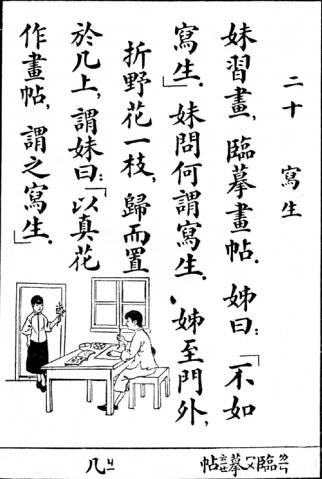 二十 寫生
妹習畫,臨摹畫帖.姊曰:「不如
寫生.」妹問何謂寫生.姊至門外,
折野花一枝,歸而置
於几上,謂妹曰:「以真花
作畫帖,謂之寫生.」
臨摹帖
几ㄐㄧ